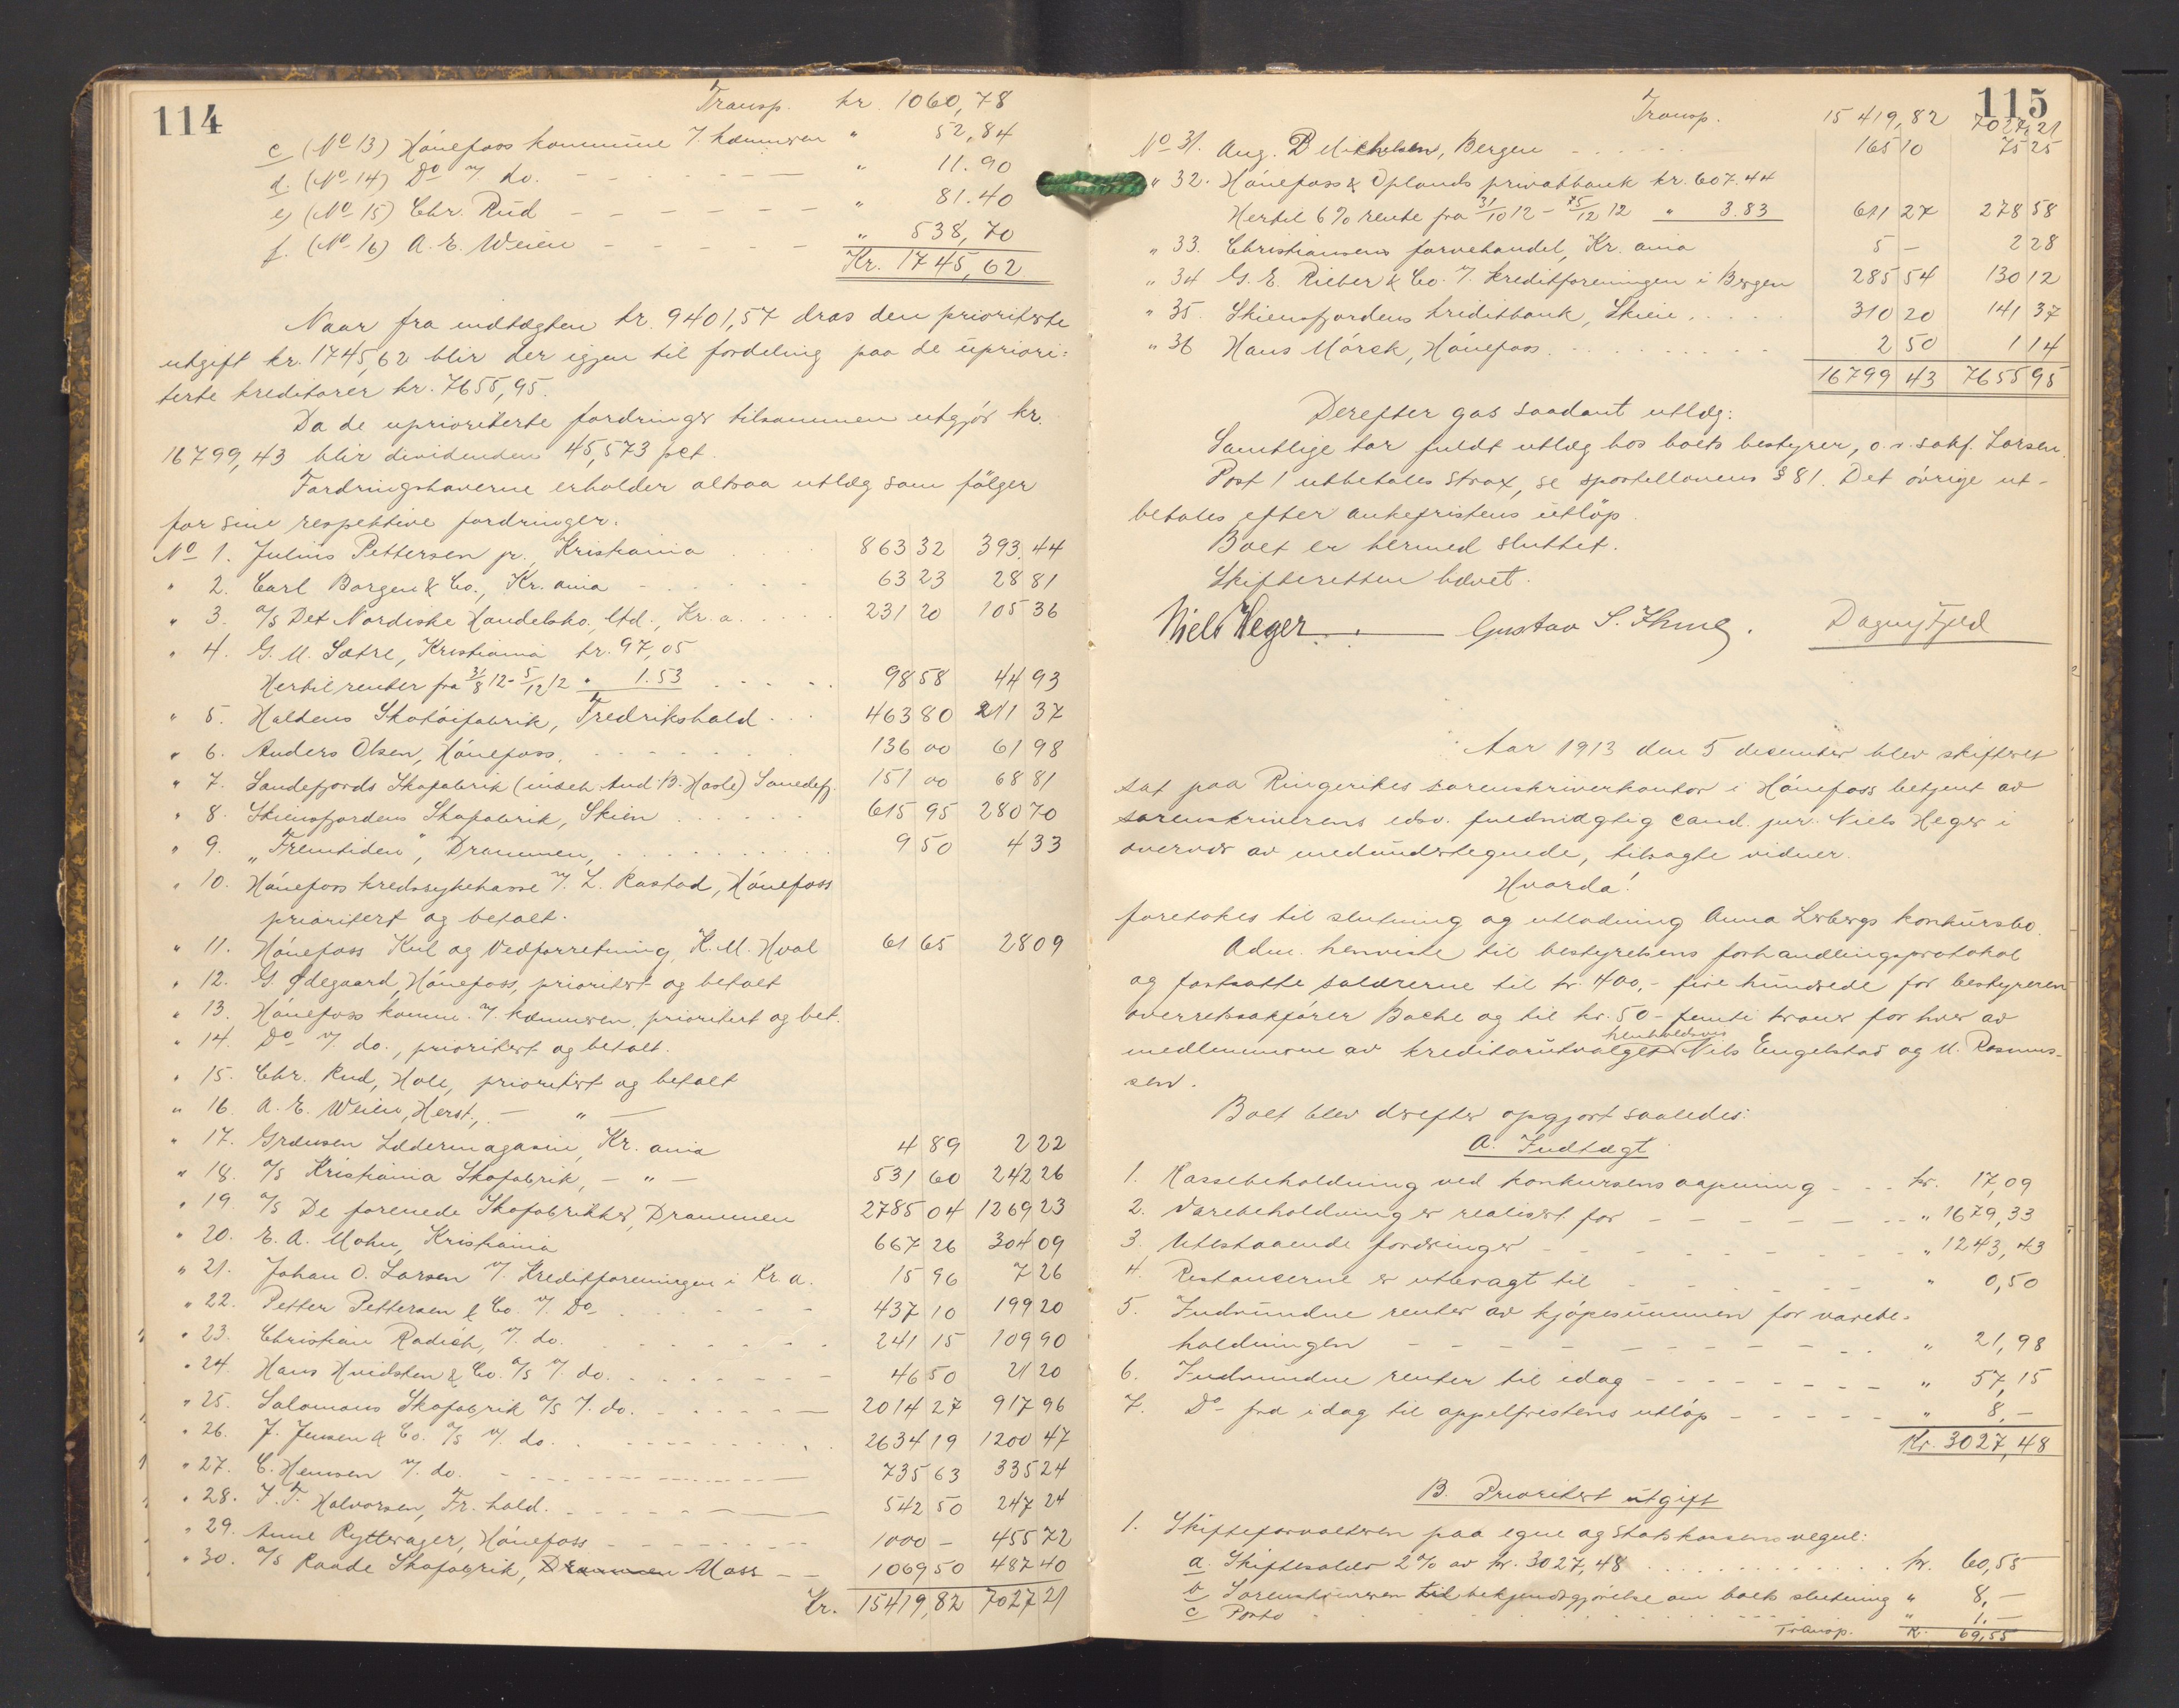 114
Transp. kr. 1060,78
c (No 13) Hónefoss kommune v/. kæmneren " 52,84
d. (No 14) Do v/. do. - - - - - " 11.90
e) (No 15) Chr. Rud - - - - - - " 81.40
f. (No 16) A. E. Weien - - - - - " 538,70
Kr. 1745,62
Naar fra indtægten kr. 9401,57 dras den prioriterte
utgift kr. 1745,62 blir der igjen til fordeling paa de upriori=
terte kreditorer kr. 7655,95.
Da de uprioriterte fordringer tilsammen utgjór kr.
16799,43 blir dividenden 45,573 pct.
Fordringshaverne erholder altsaa utlæg som fölger
for sine respektive fordringer.
No 1. Julius Pettersen jr., Kristiania 863 32 393.44
" 2. Carl Borgen & Co., Kr. ania 63 23 28 81
" 3. A/S Det Nordiske Handelsko. ltd., Kr. a. 231 20 105 36
" 4. G. M. Sætre, Kristiania kr. 97,05
Hertil renter fra 31/8 12 - 5/12 12 " 1.53 98 58 44 93
" 5. Haldens Skotöifabrik, Fredrikshald 463 80 211 37
" 6. Anders Olsen, Hónefoss. 136 00 61 98
" 7. Sandefjords Skofabrik (indeh. And. B. Hasle) Sandefj. 151 00 68 81
" 8. Skiensfjordens Skofabrik, Skien 615 95 280 70
" 9. „Fremtiden", Drammen, 9 50 4 33
" 10. Hónefoss kredssykekasse v/. L. Rastad, Hónefoss
prioritert og betalt.
" 11. Hónefoss Kul og Vedforretning, K. M. Hval 61 65 28 09
" 12. G. Ødegaard, Hónefoss, prioritert og betalt
" 13. Hónefoss komm. v/. kæmneren, prioritert og bet.
" 14. Do v/. do., prioritert og betalt.
" 15. Chr. Rud, Hole, prioritert og betalt
" 16. A. E. Weien, Herst., — " —
" 17. Grænsen Lædermagasin, Kr. ania 4 89 2 22
" 18. A/S Kristiania Skofabrik, — " — 531 60 242 26
" 19. A/S De forenede Skofabrikker, Drammen 2785 04 1269 23
" 20. E. A. Mohn, Kristiania 667 26 304 09
" 21. Johan O. Larsen v/. Kreditforeningen i Kr. a. 15 96 7 26
" 22. Petter Pettersen & Co. v/. Do 437 10 199 20
" 23. Christian Radich, v/. do. 241 15 109 90
" 24. Hans Hvidsten & Co. A/S v/. do. 46 50 21 20
" 25. Salomons Skofabrik A/S v/. do. 2014 27 917 96
" 26. J. Jensen & Co. A/S v/. do. 2634 19 1200 47
" 27. C. Hemsen v/. do. 735 63 335 24
" 28. J. T. Halvorsen, Fr. hald. 542 50 247 24
" 29. Anne Rytterager, Hónefoss 1000 — 455 72
" 30. A/S Raade Skofabrik, Drammen Moss 1069 50 487 40
Kr. 15419,82 7027 21
115
Transp. 15419,82 7027,21
No 31. Aug. B Michelsen, Bergen 165 10 75 25
" 32. Hónefoss & Oplands privatbank kr. 607.44
Hertil 6% rente fra 31/10 12 - 5/12 12 " 3.83 611 27 278 58
" 33. Christiansens farvehandel, Kr. ania 5 — 2 28
" 34 G. E. Rieber & Co. v/. Kreditforeningen i Bergen 285 54 130 12
" 35. Skiensfjordens kreditbank, Skien 310 20 141 37
" 36 Hans Mórck, Hónefoss. 2 50 1 14
16799 43 7655 95
Derefter gas saadant utlæg:
Samtlige tar fuldt utlæg hos boets bestyrer, o. r. sakf. Larsen.
Post 1 utbetales strax, se sportellovens § 81. Det óvrige ut-
betales efter ankefristens utlöp.
Boet er hermed sluttet.
Skifteretten hævet.
Niels Heger Gustav S. Ihme. Dagny Fjeld
Aar 1913 den 5 desember blev skifteret
sat paa Ringerikes sorenskriverkontor i Hónefoss betjent av
sorenskriverens edsv. fuldmægtig cand. jur. Niels Heger i
overvær av medundertegnede, tilsagte vidner.
Hvorda!
foretokes til slutning og utlodning Anna Lerbergs konkursbo.
Adm. henviste til bestyrelsens forhandlingsprotokol
og fastsatte salærerne til kr. 400,- fire hundrede for bestyreren
overretssakfórer Bache og til kr. 50 - femti kroner for hver av
henholdsvis
medlemmerne av kreditorutvalget Nils Engelstad og M. Rasmus-
sen.
Boet blev derefter opgjort saaledes:
A. Indtægt
1. Kassebeholdning ved konkursens aapning - - - kr. 17,09
2. Varebeholdning er realisert for - - - - - - " 1679,33
3. Utestaaende fordringer - - - - - - - - " 1243,43
4. Restancerne er utbragt til - - - - - " 0,50
5. Indvundne renter av kjópesummen for varebe-
holdningen - - - - - - - - - " 21,98
6. Indvundne renter til idag - - - - - - - " 57,15
7. Do fra idag til appelfristens utlóp - - - - - " 8,—
Kr. 3027,48
B. Prioritert utgift
1. Skifteforvalteren paa egne og Statskassens vegne:
a. Skiftesalær 2% av kr. 3027,48 kr. 60,55
b Sorenskriveren til bekjendtgjörelse om boets slutning " 8,—
c Porto " 1.—
Transp. Kr. 69,55